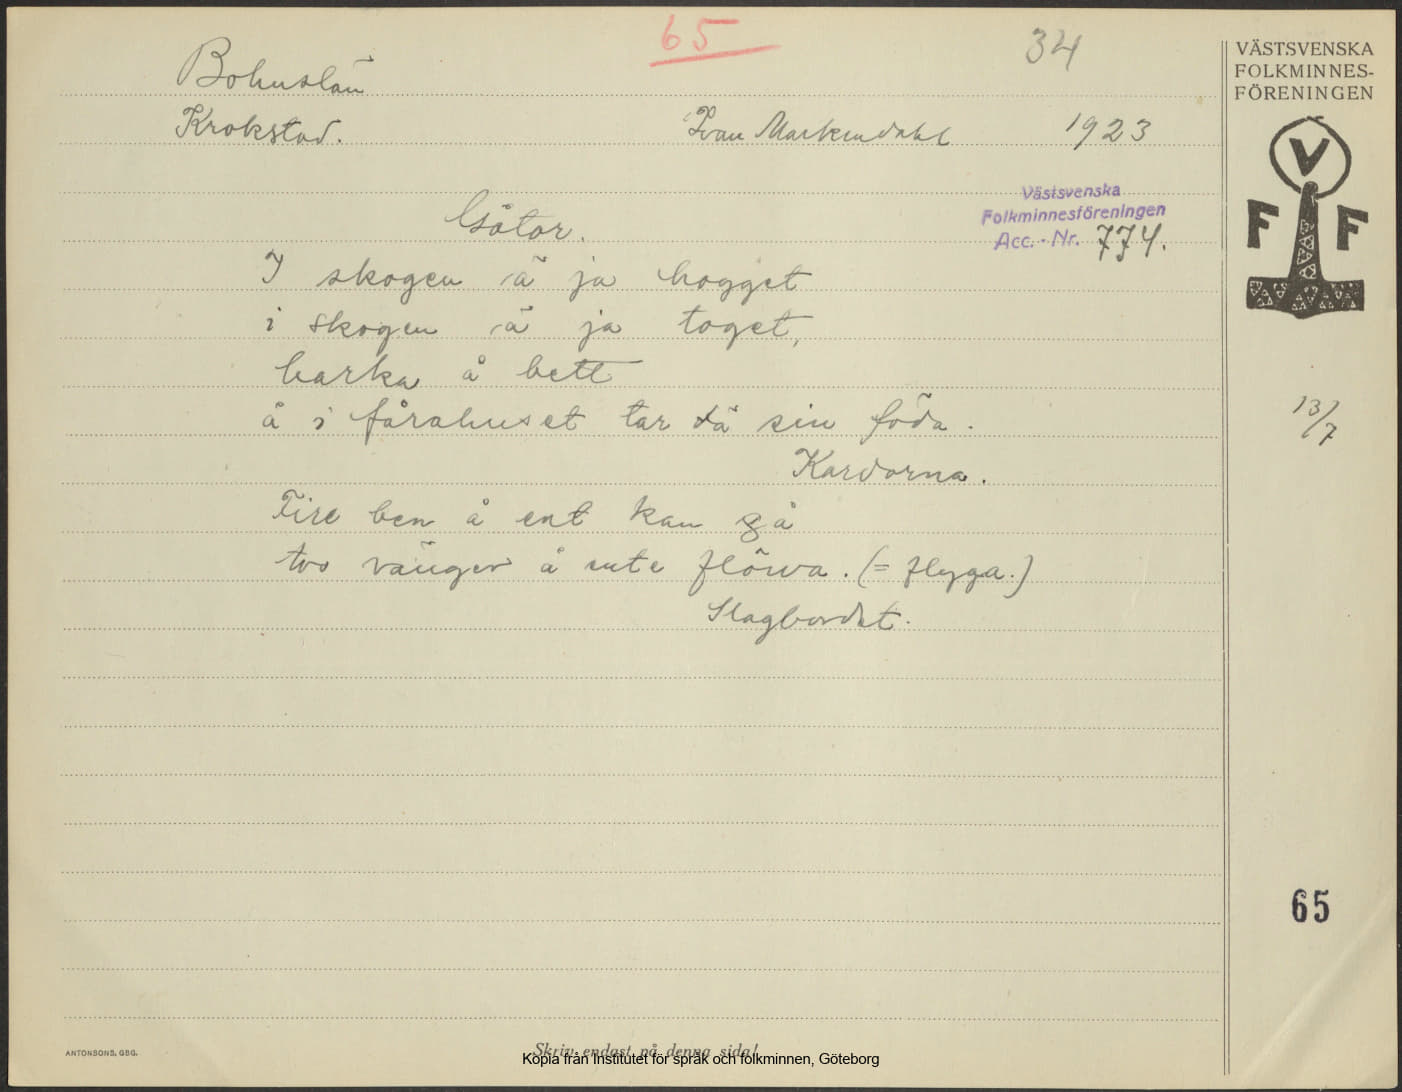 65
34
VÄSTSVENSKA
FOLKMINNES-
FÖRENINGEN
Bohuslän
Krokstad. Ivan Markendahl 1923
V
F F
Västsvenska
Folkminnesföreningen
Acc. - Nr. 774.
Gåtor.
I skogen ä ja hogget
i skogen ä ja toget,
barka å bett
å i fårahuset tar dä sin föda.
13/7
Kardorna.
Fire ben å ent kan gå
tvo vänger å ente flöwa. (= flyga.)
Slagbordet.
65
ANTONSONS, GBG.
Skriv endast på denna sida!
Kopia från Institutet för språk och folkminnen, Göteborg